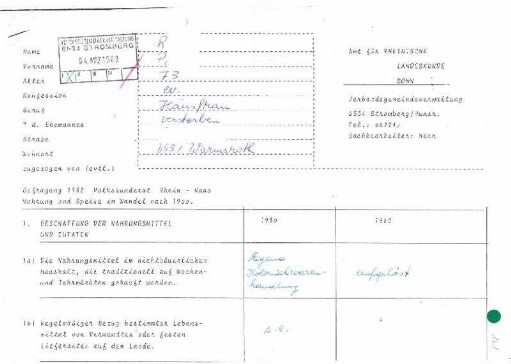 VERBANDSGEMEINDEVERWALTUNG
6534 STROMBERG
04. MRZ. 1983
Name R
Vorname R
Alter 73
Konfession ev.
Beruf Hausfrau
" d. Ehemannes verstorben
Straße
Wohnort 6531 Warmsroth
zugezogen von (evtl.)
Amt für RHEINISCHE
LANDESKUNDE
BONN
Verbandsgemeindeverwaltung
6534 Stromberg/Hunsr.
Tel.:
Sachbearbeiter:
Befragung 1982 Volkskunderat Rhein - Nahe
Nahrung und Speise im Wandel nach 1900.
1. BESCHAFFUNG DER NAHRUNGSMITTEL
UND ZUTATEN
1900
1982
1a) Die Nahrungsmittel im nichtbäuerlichen
Haushalt, die traditionell auf Wochen-
und Jahrmärkten gekauft werden.
Eigene
Kolonialwaren-
handlung
aufgelöst
1b) Regelmäßiger Bezug bestimmter Lebens-
mittel von Verwandten oder festen
Lieferanten auf dem Lande.